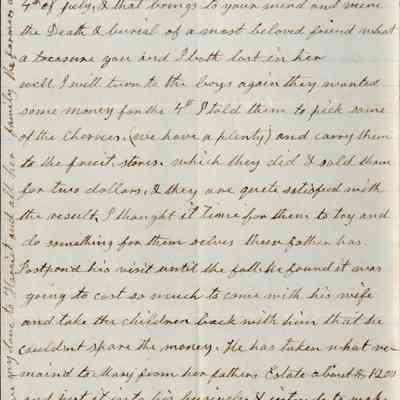 4th of July, & that brings to your mind and mine
the Death & burial of a most beloved friend what
a treasure you and I both lost in her
well I will turn to the boys again they wanted
some money for the 4th I told them to pick some
of the Cherries. (we have a plenty) and carry them
to the fruit stores. which they did & sold them
for two dollars, & they are quite satisfied with
the result, I thought it time for them to try and
do something for them selves there father has
Postpon'd his visit until the fall. he found it was
going to cost so much to come with his wife
and take the children back with him that he
couldn't spare the money. He has taken what re
maind to Mary from her fathers Estate about $ 1200
and put it into his business & intends to make
love to Harriet and all her family